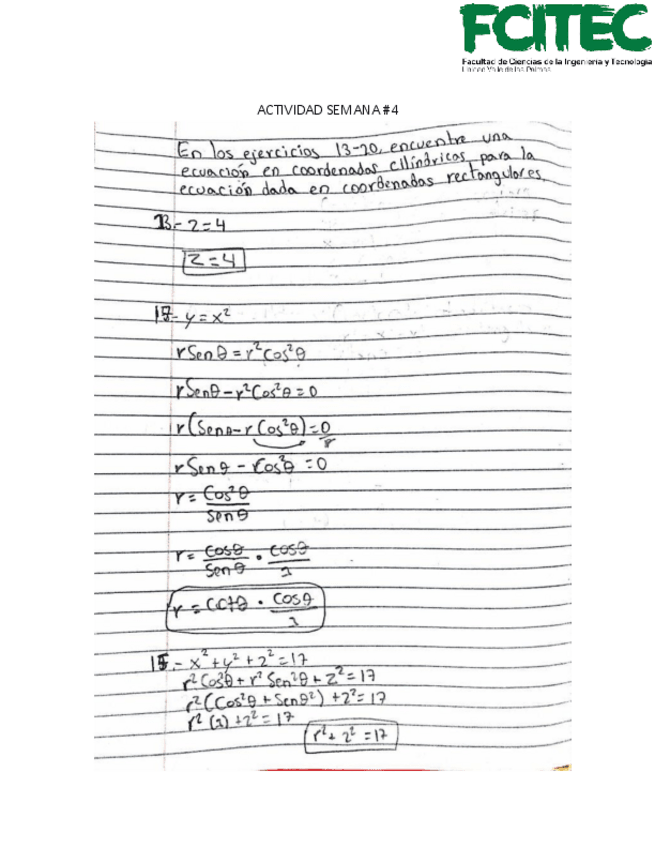 FCITEC
Facultad de Ciencias de la Ingeniería y Tecnología
Unidad Valle de las Palmas
ACTIVIDAD SEMANA #4
En los ejercicios 13-20, encuentre una
ecuación en coordenadas cilíndricas para la
ecuación dada en coordenadas rectangulares.
13.- z=4
z=4
17- y=x²
rSenθ=r²Cos²θ
rSenθ-r²Cos²θ=0
r(Senθ-rCos²θ)=0/r
rSenθ - rCos²θ =0
r= Cos²θ/Senθ
r= Cosθ/Senθ · Cosθ/1
r= Cctθ · Cosθ/1
15.- x²+y²+z²=17
r²Cos²θ+r²Sen²θ+z²=17
r²(Cos²θ+Senθ²)+z²=17
r²(1)+z²=17
r²+z²=17